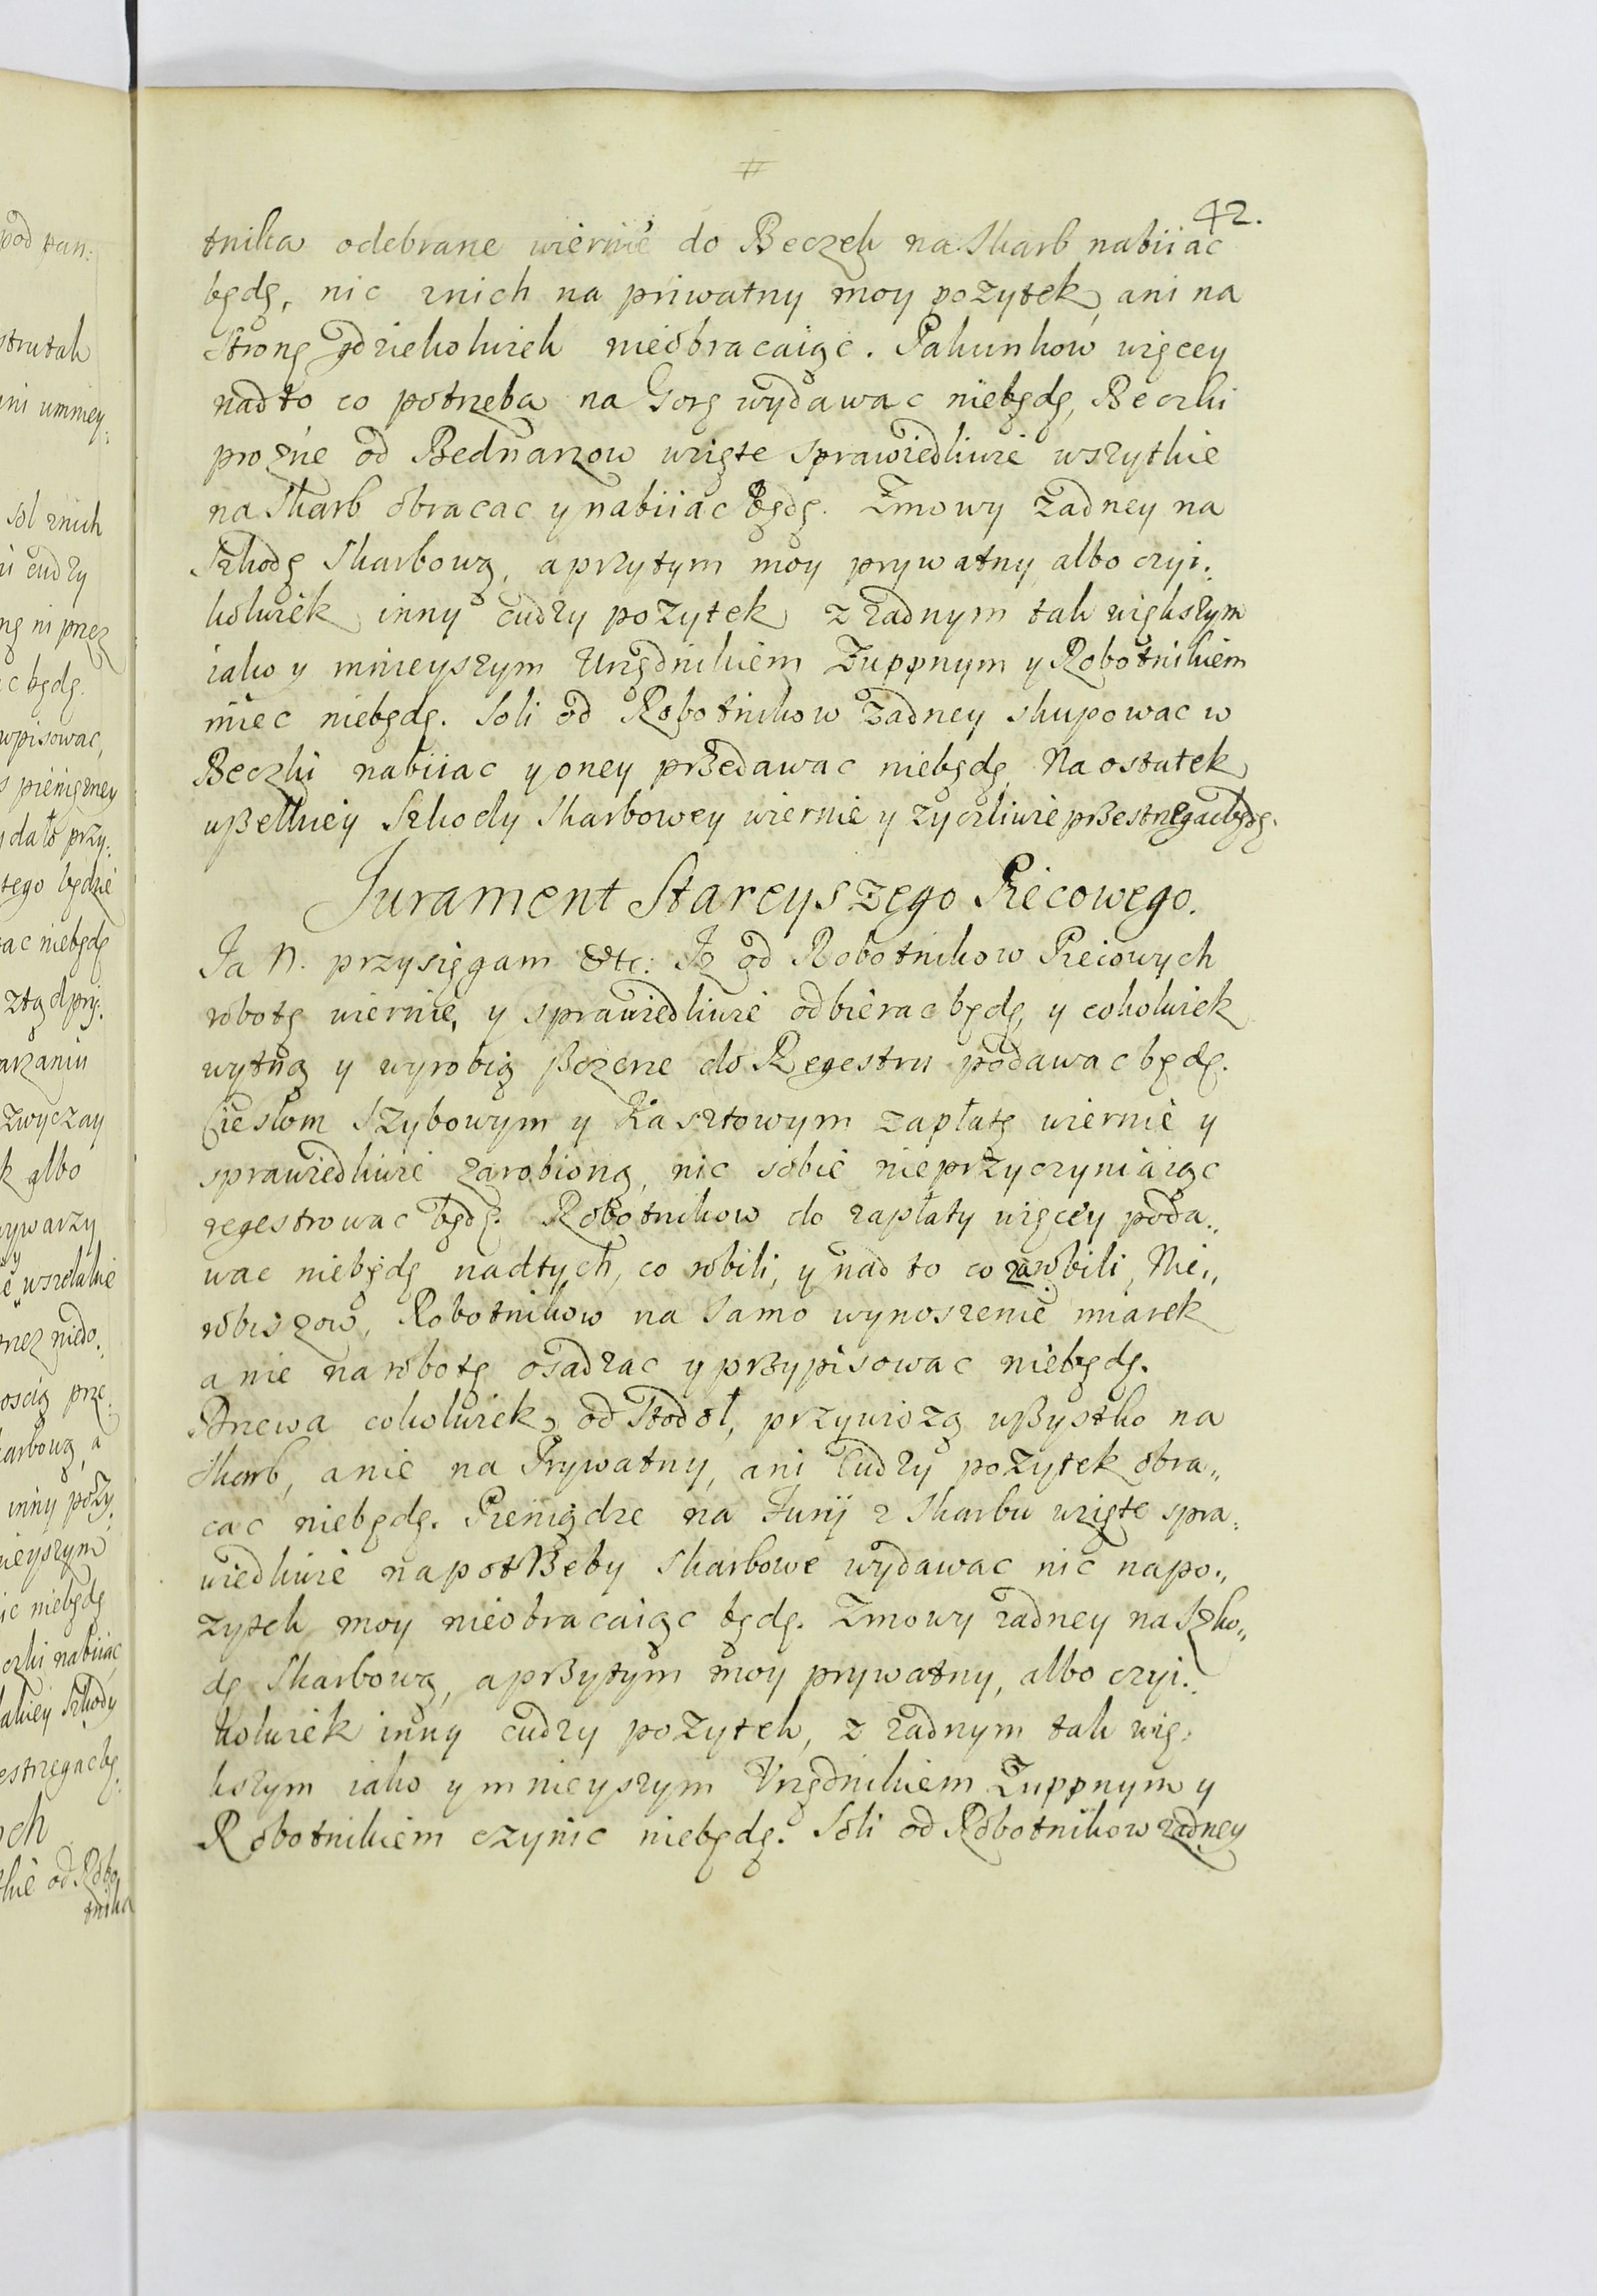 42.
tnika odebrane wiernie do Beczek na Skarb nabiiac
będę, nic znich na priwatny moy pozytek, ani na
Stronę gdziekolwiek nieobracaiąc. Pakunkow więcey
nad to co potrzeba na Gorę wydawac niebędę, Beczki
prozne od Bednarzow wzięte sprawiedliwie wszytkie
na Skarb obracac y nabiiac będę. Zmowy zadney na
Szkodę Skarbową, aprzytym moy prywatny albo czyi:
kolwiek inny cudzy pozytek z zadnym tak większym
iako y mnieyszym Urzędnikiem Zuppnym y Robotnikiem
miec niebędę. Soli od Robotnikow zadney skupowac w
Beczki nabiiac y oney przedawac niebędę, Na ostatek
wßelkiey Szkody Skarbowey wiernie y zyczliwie pßestrzegac będę.
Jurament Starcyszego Piecowego.
Ja N. przysięgam &tc: Iz od Robotnikow Piecowych
robotę wiernie, y sprawiedliwie odbierac będę, y cokolwiek
wytną y wyrobią ßczerze do Regestru podawac będę.
Cieslom Szybowym y Kasztowym zapłatę wiernie y
sprawiedliwie zarobioną, nic sobie nieprzyczyniaiąc
regestrowac będę. Robotnikow do zapłaty więcey poda„
wac niebędę nadtych, co robili, y nad to co zarobili, Nie„
robiszow, Robotnikow na samo wynoszenie miarek
a nie na robotę osadzac y przypisowac niebędę.
Drzewa cokolwiek od Stodoł, przywiozą wßystko na
Skarb, anie na Prywatny, ani Cudzy pozytek obra„
cac niebędę. Pieniądze na Furÿ z Skarbu wzięte spra„
wiedliwie na potßeby Skarbowe wydawac nic napo„
zytek moy nieobracaiąc będę. Zmowy zadney na Szko„
dę Skarbową, apßytym moy prywatny, albo czyi:
kolwiek inny cudzy pozytek, z zadnym tak wię:
kszym iako y mnieyszym Vrzędnikiem Zuppnym y
Robotnikiem czynic niebędę. Soli od Robotnikow zadney